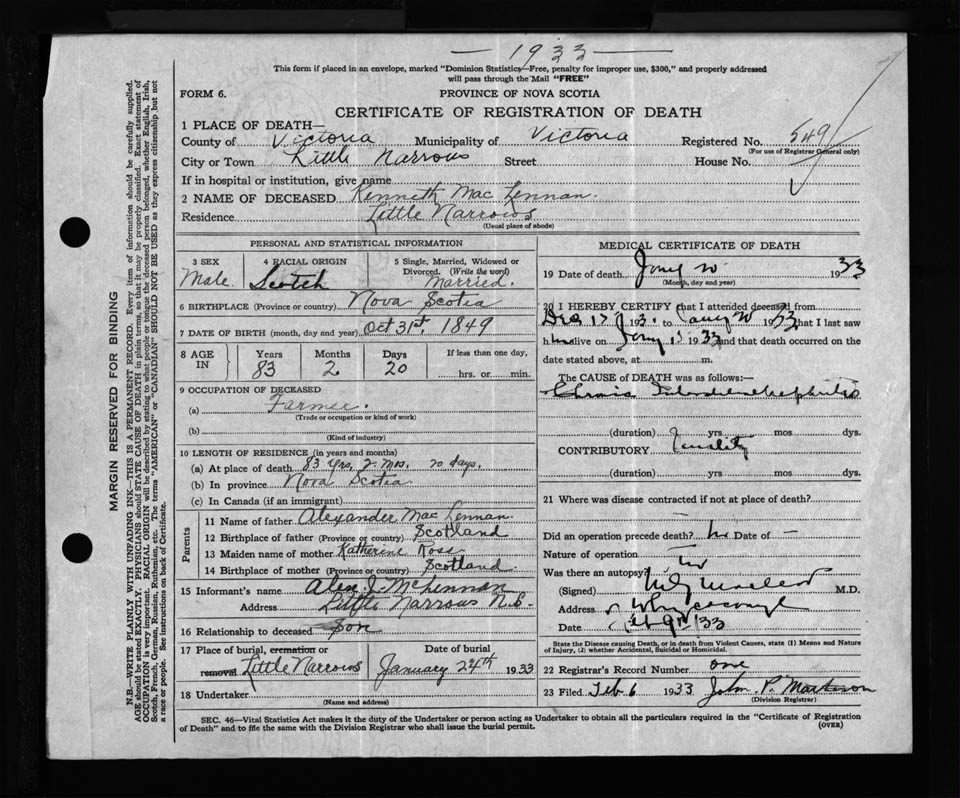 1933
This form if placed in an envelope, marked "Dominion Statistics—Free, penalty for improper use, $300," and properly addressed
will pass through the Mail "FREE"
FORM 6.
PROVINCE OF NOVA SCOTIA
CERTIFICATE OF REGISTRATION OF DEATH
1 PLACE OF DEATH—
County of Victoria Municipality of Victoria Registered No. 549
(For use of Registrar General only)
City or Town Little Narrows Street House No.
If in hospital or institution, give name
2 NAME OF DECEASED Kenneth Mac Lennan.
Residence Little Narrows
(Usual place of abode)
PERSONAL AND STATISTICAL INFORMATION
3 SEX 4 RACIAL ORIGIN 5 Single, Married, Widowed or Divorced. (Write the word)
Male. Scotch Married.
6 BIRTHPLACE (Province or country) Nova Scotia
7 DATE OF BIRTH (month, day and year) Oct 31st, 1849
8 AGE IN Years Months Days If less than one day,
83 2 20 hrs. or min.
9 OCCUPATION OF DECEASED
(a) Farmer.
(Trade or occupation or kind of work)
(b)
(Kind of industry)
10 LENGTH OF RESIDENCE (in years and months)
(a) At place of death 83 yrs, 2 mos. 20 days.
(b) In province Nova Scotia
(c) In Canada (if an immigrant)
Parents
11 Name of father Alexander Mac Lennan.
12 Birthplace of father (Province or country) Scotland
13 Maiden name of mother Katherine Ross
14 Birthplace of mother (Province or country) Scotland
15 Informant's name Alex J. McLennan
Address Little Narrows
16 Relationship to deceased Son
17 Place of burial, cremation or removal Date of burial
Little Narrows January 24th 1933
18 Undertaker
(Name and address)
MEDICAL CERTIFICATE OF DEATH
19 Date of death 1933
(Month, day and year)
20 I HEREBY CERTIFY that I attended deceased from
to 1933 that I last saw
h alive on 1933 and that death occurred on the
date stated above, at m.
The CAUSE OF DEATH was as follows:—
(duration) yrs mos dys.
CONTRIBUTORY Senility
(duration) yrs mos dys.
21 Where was disease contracted if not at place of death?
Did an operation precede death? no Date of —
Nature of operation
Was there an autopsy? no
(Signed) M.D.
Address
Date 33
State the Disease causing Death, or in death from Violent Causes, state (1) Means and Nature
of Injury, (2) whether Accidental, Suicidal or Homicidal.
22 Registrar's Record Number one
23 Filed Feb 6 1933 John P.
(Division Registrar)
SEC. 46—Vital Statistics Act makes it the duty of the Undertaker or person acting as Undertaker to obtain all the particulars required in the "Certificate of Registration
of Death" and to file the same with the Division Registrar who shall issue the burial permit.
(OVER)
MARGIN RESERVED FOR BINDING
N.B.—WRITE PLAINLY WITH UNFADING INK—THIS IS A PERMANENT RECORD. Every item of information should be carefully supplied.
AGE should be stated EXACTLY. PHYSICIANS should STATE CAUSE OF DEATH in plain terms, so that it may be properly classified. Exact statement of
OCCUPATION is very important. RACIAL ORIGIN will be described by stating to what people or tongue the deceased person belonged, whether English, Irish,
Scotch, French, German, Russian, Ruthenian, etc. The terms "AMERICAN" or "CANADIAN" SHOULD NOT BE USED as they express citizenship but not
a race or people. See instructions on back of Certificate.